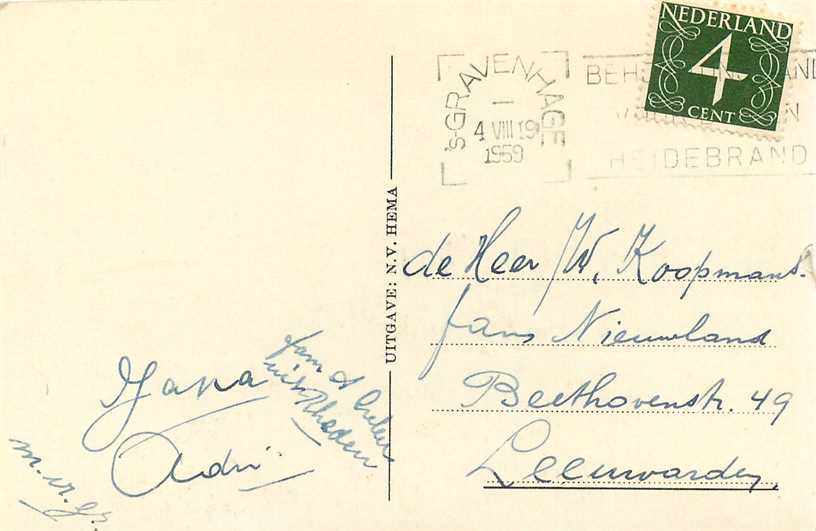 NEDERLAND
4
CENT
's-GRAVENHAGE
4 VIII 19
1959
HEIDEBRAND
UITGAVE: N.V. HEMA
de Heer W. Koopmans.
fam Nieuwland
Beethovenstr. 49
Leeuwarden
fam
uit Rheden
Adri
m.vr.gr.